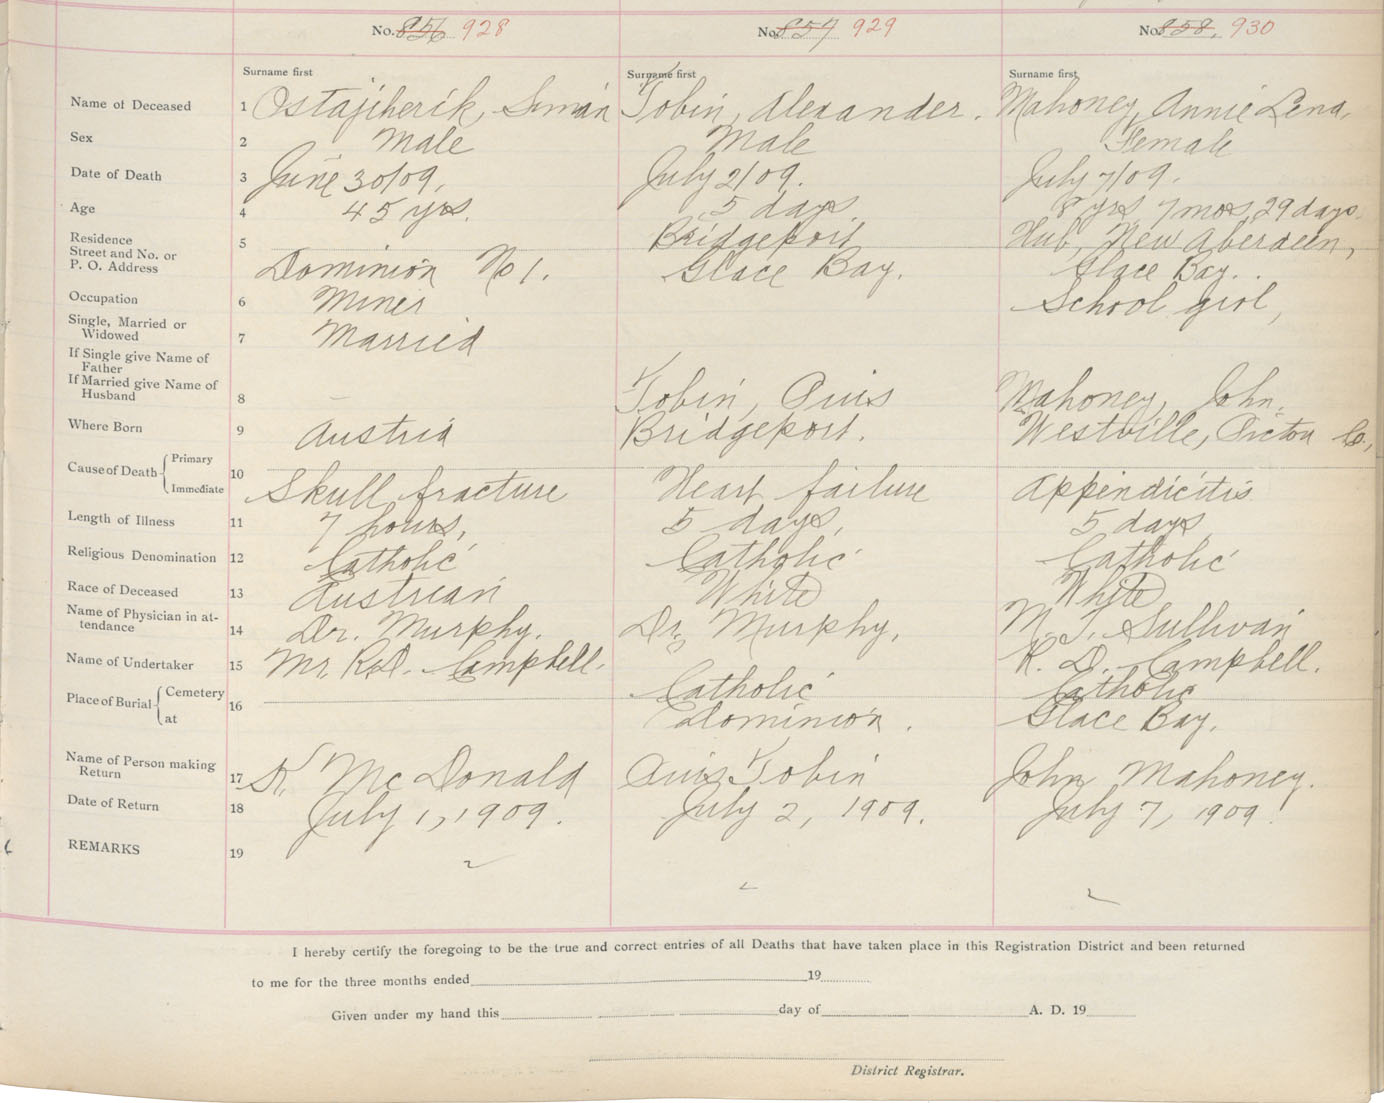 No. 856 928 No. 857 929 No. 858, 930
Surname first Surname first Surname first
Name of Deceased 1 Ostajiherik, Simán Tobin, Alexander. Mahoney, Annie Lena,
Sex 2 Male Male Female
Date of Death 3 June 30/09, July 2/09. July 7/09.
Age 4 45 yrs. 5 days 8 yrs 7 mos 29 days.
Residence Street and No. or P. O. Address 5 Dominion No 1. Bridgeport Glace Bay. Hub, New Aberdeen, Glace Bay..
Occupation 6 Miner School girl,
Single, Married or Widowed 7 Married
If Single give Name of Father
If Married give Name of Husband 8 – Tobin, Pius Mahoney, John,
Where Born 9 Austria Bridgeport. Westville, Pictou Co.,
Cause of Death { Primary Immediate 10 Skull fracture Heart failure Appendicitis
Length of Illness 11 7 hours, 5 days, 5 days
Religious Denomination 12 Catholic Catholic Catholic
Race of Deceased 13 Austrian White White
Name of Physician in attendance 14 Dr. Murphy. Dr. Murphy, M. T. Sullivan
Name of Undertaker 15 Mr. R.D. Campbell. R. D. Campbell.
Place of Burial { Cemetery at 16 Catholic Dominion. Catholic Glace Bay.
Name of Person making Return 17 K. McDonald Pius Tobin John Mahoney.
Date of Return 18 July 1, 1909. July 2, 1909. July 7, 1909.
REMARKS 19
I hereby certify the foregoing to be the true and correct entries of all Deaths that have taken place in this Registration District and been returned
to me for the three months ended 19
Given under my hand this day of A. D. 19
District Registrar.